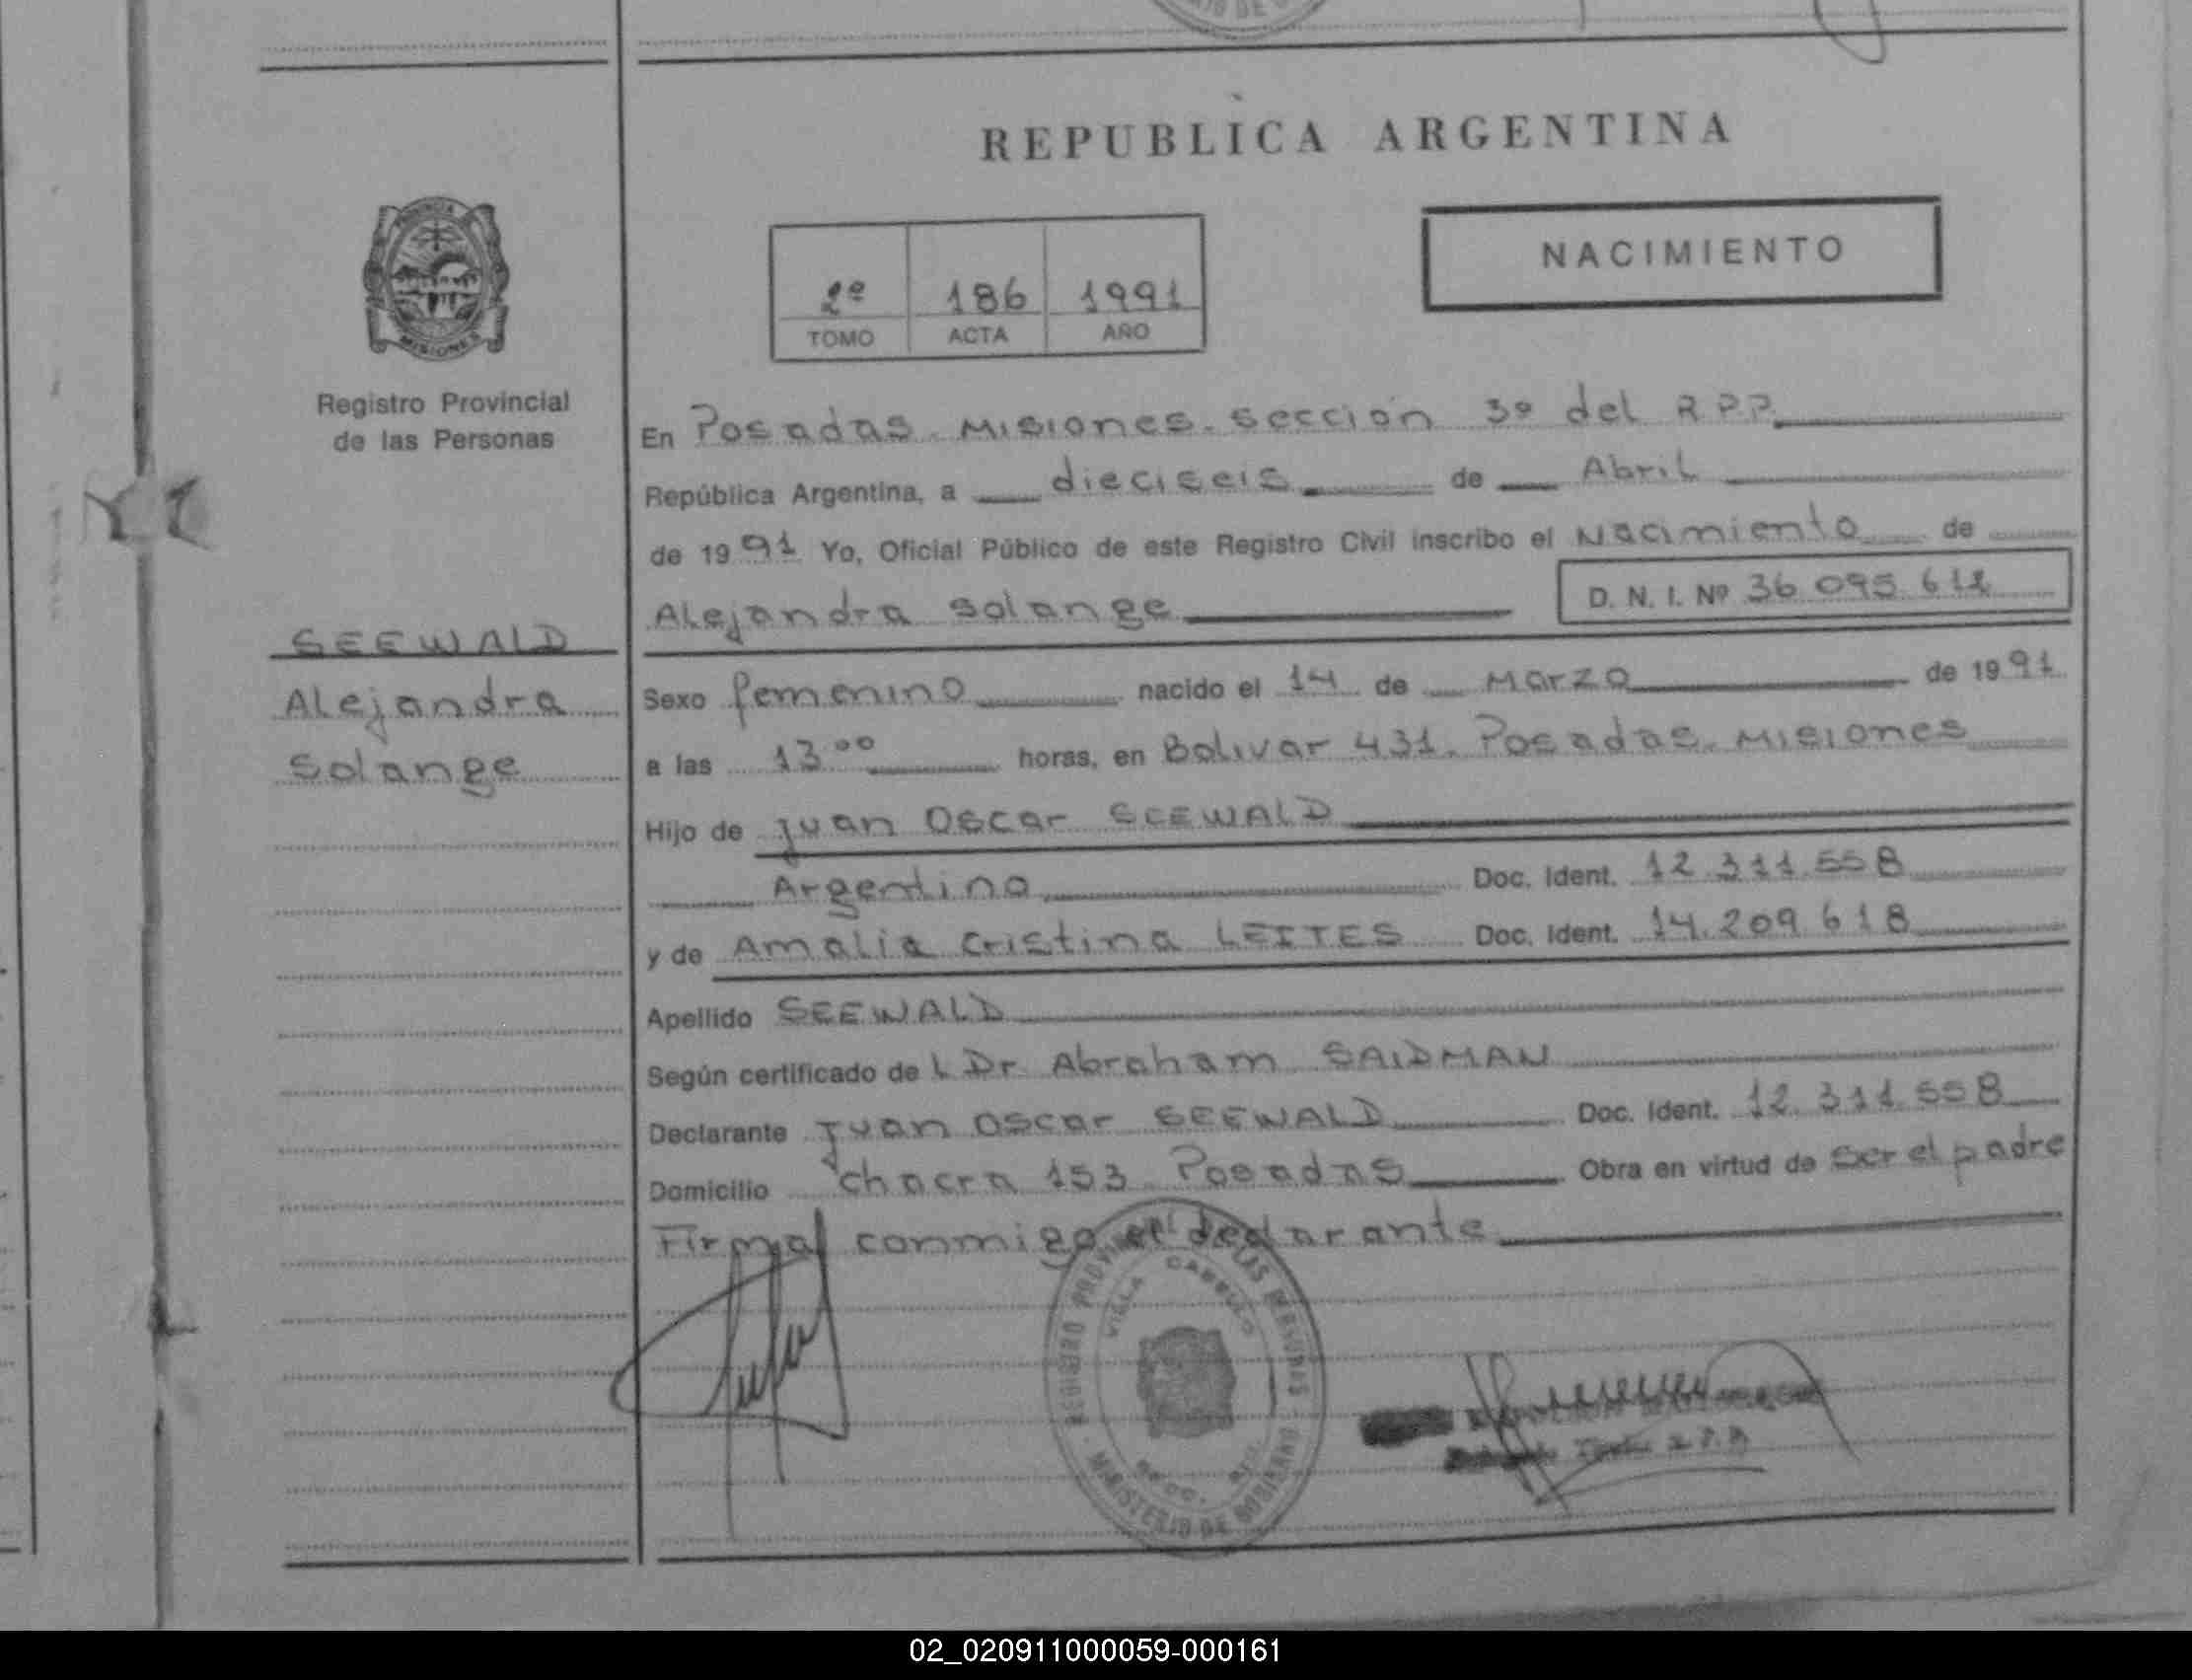 REPUBLICA ARGENTINA
NACIMIENTO
2º 186 1991
TOMO ACTA AÑO
PROVINCIA
MISIONES
Registro Provincial
de las Personas
SEEWALD
Alejandra
Solange
En Posadas. Misiones. Sección 3º del R.P.P.
República Argentina, a dieciseis de Abril
de 1991 Yo, Oficial Público de este Registro Civil inscribo el Nacimiento de
Alejandra Solange D. N. I. Nº 36 095 612
Sexo femenino nacido el 14 de Marzo de 1991
a las 13 00 horas, en Bolivar 431. Posadas. Misiones
Hijo de Juan Oscar SEEWALD
Argentino Doc. Ident. 12.311.558
y de Amalia Cristina LEITES Doc. Ident. 14.209.618
Apellido SEEWALD
Según certificado de l Dr. Abraham SAIDMAN
Declarante Juan Oscar SEEWALD Doc. Ident. 12.311.558
Domicilio Chacra 153 Posadas Obra en virtud de ser el padre
Firma conmigo el declarante
REGISTRO PROVINCIAL DE LAS PERSONAS
VILLA CABELLO
MINISTERIO DE GOBIERNO
02_020911000059-000161